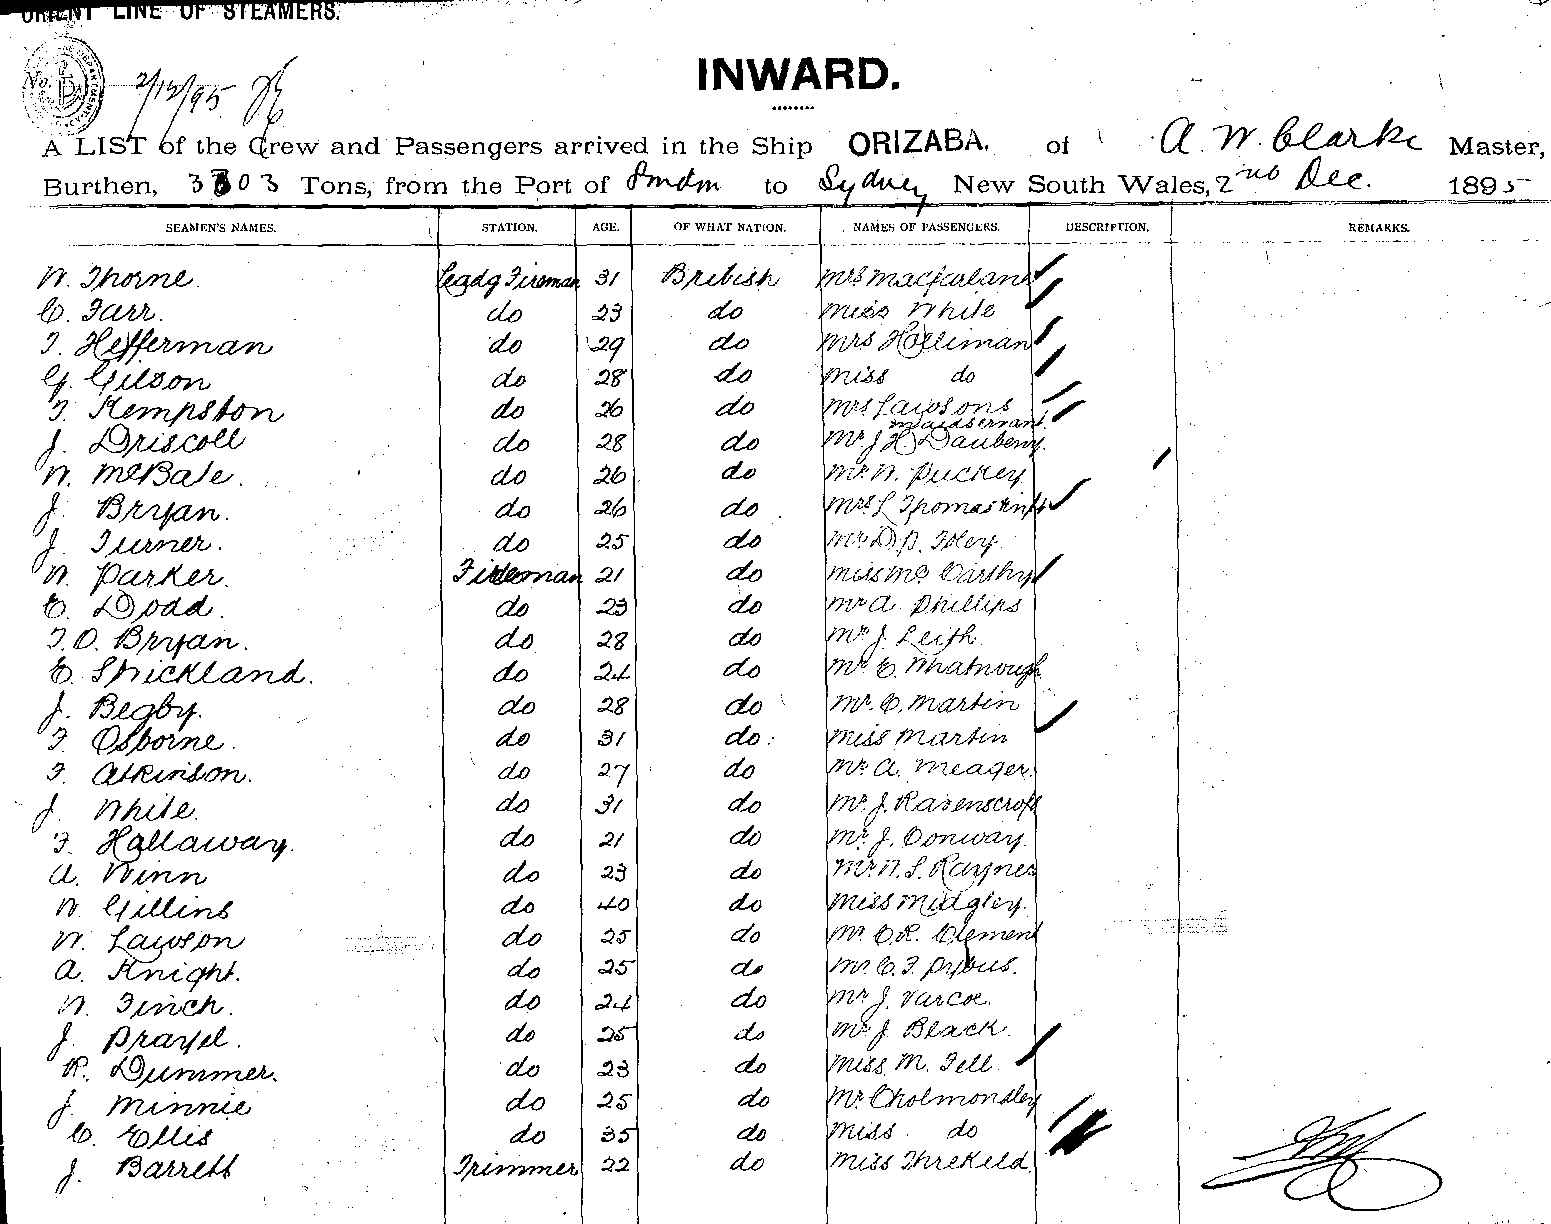 ORIENT LINE OF STEAMERS.
INWARD.
No. 2/12/95
A LIST of the Crew and Passengers arrived in the Ship ORIZABA. of A. W. Clarke Master,
Burthen, 3303 Tons, from the Port of London to Sydney New South Wales, 2nd Dec. 1895
SEAMEN'S NAMES. STATION. AGE. OF WHAT NATION. NAMES OF PASSENGERS. DESCRIPTION. REMARKS.
W. Thorne. Leadg Fireman 31 British Mrs Macfarlane
C. Farr. do 23 do Miss White
T. Hefferman do 29 do Mrs Holliman
G. Gilson do 28 do Miss do
T. Kempston do 26 do Mrs Lawsons maidservant
J. Driscoll do 28 do Mr J H Daubeny.
W. McBale. do 26 do Mr W. Puckey
J. Bryan. do 26 do Mrs L Thomas & Inft
J. Turner. do 25 do Mr D. P. Foley
W. Parker. Fireman 21 do Miss Mc Carthy
E. Dodd. do 23 do Mr A. Phillips
T. O. Bryan. do 28 do Mr J. Leith
E. Strickland. do 24 do Mr E. Whatmough
J. Begby. do 28 do Mr C. Martin
F. Osborne. do 31 do. Miss Martin
F. Atkinson. do 27 do Mr A. Meager.
J. White. do 31 do Mr J. Ravenscroft
F. Hallaway. do 21 do Mr J. Conway.
A. Winn do 23 do Mr W. S. Rayner
W. Gillins do 40 do Miss Midgley.
W. Lawson do 25 do Mr C. R. Clement
A. Knight. do 25 do Mr C. F. Pybus.
W. Finch. do 24 do Mr J. Varcoe.
J. do 25 do Mr J. Black.
R. Dummer. do 23 do Miss M. Fell
J. Minnie do 25 do Mr Cholmondley
C. Ellis do 35 do Miss do
J. Barrett Trimmer 22 do Miss Threkeld